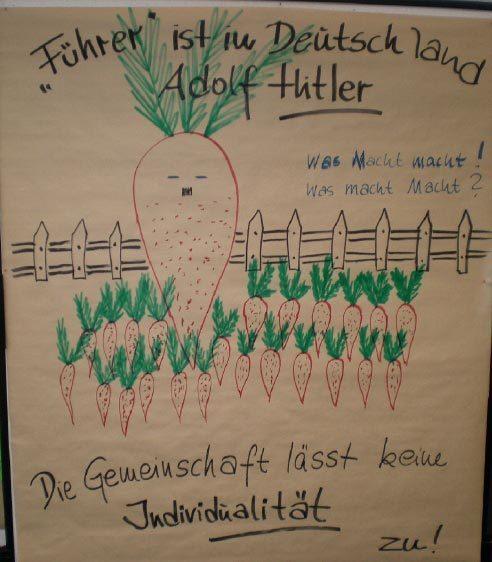 „Führer" ist in Deutschland
Adolf Hitler
Was Macht macht!
Was macht Macht?
Die Gemeinschaft lässt keine
Individualität
zu!